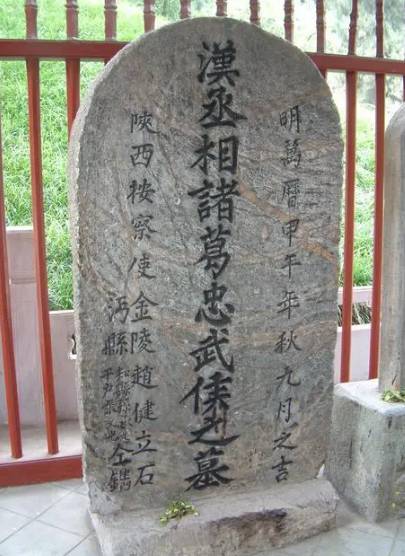 明萬曆甲午年秋九月之吉
漢丞相諸葛忠武侯之墓
陝西按察使金陵趙健立石
沔縣
仝鐫